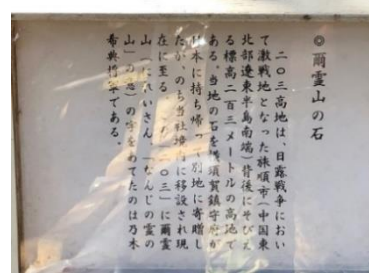 ◎爾霊山の石
二〇三高地は、日露戦争におい
て激戦地となった旅順市（中国東
北部遼東半島南端）背後にそびえ
る標高二百三メートルの高地で
ある。当地の石を横須賀鎮守府が
日本に持ち帰って別地に寄贈し
たが、のち当社境内に移設され現
在に至る。 二〇三」に爾霊
山（にれいさん 「なんじの霊の
山」の意）の字をあてたのは乃木
希典将軍である。